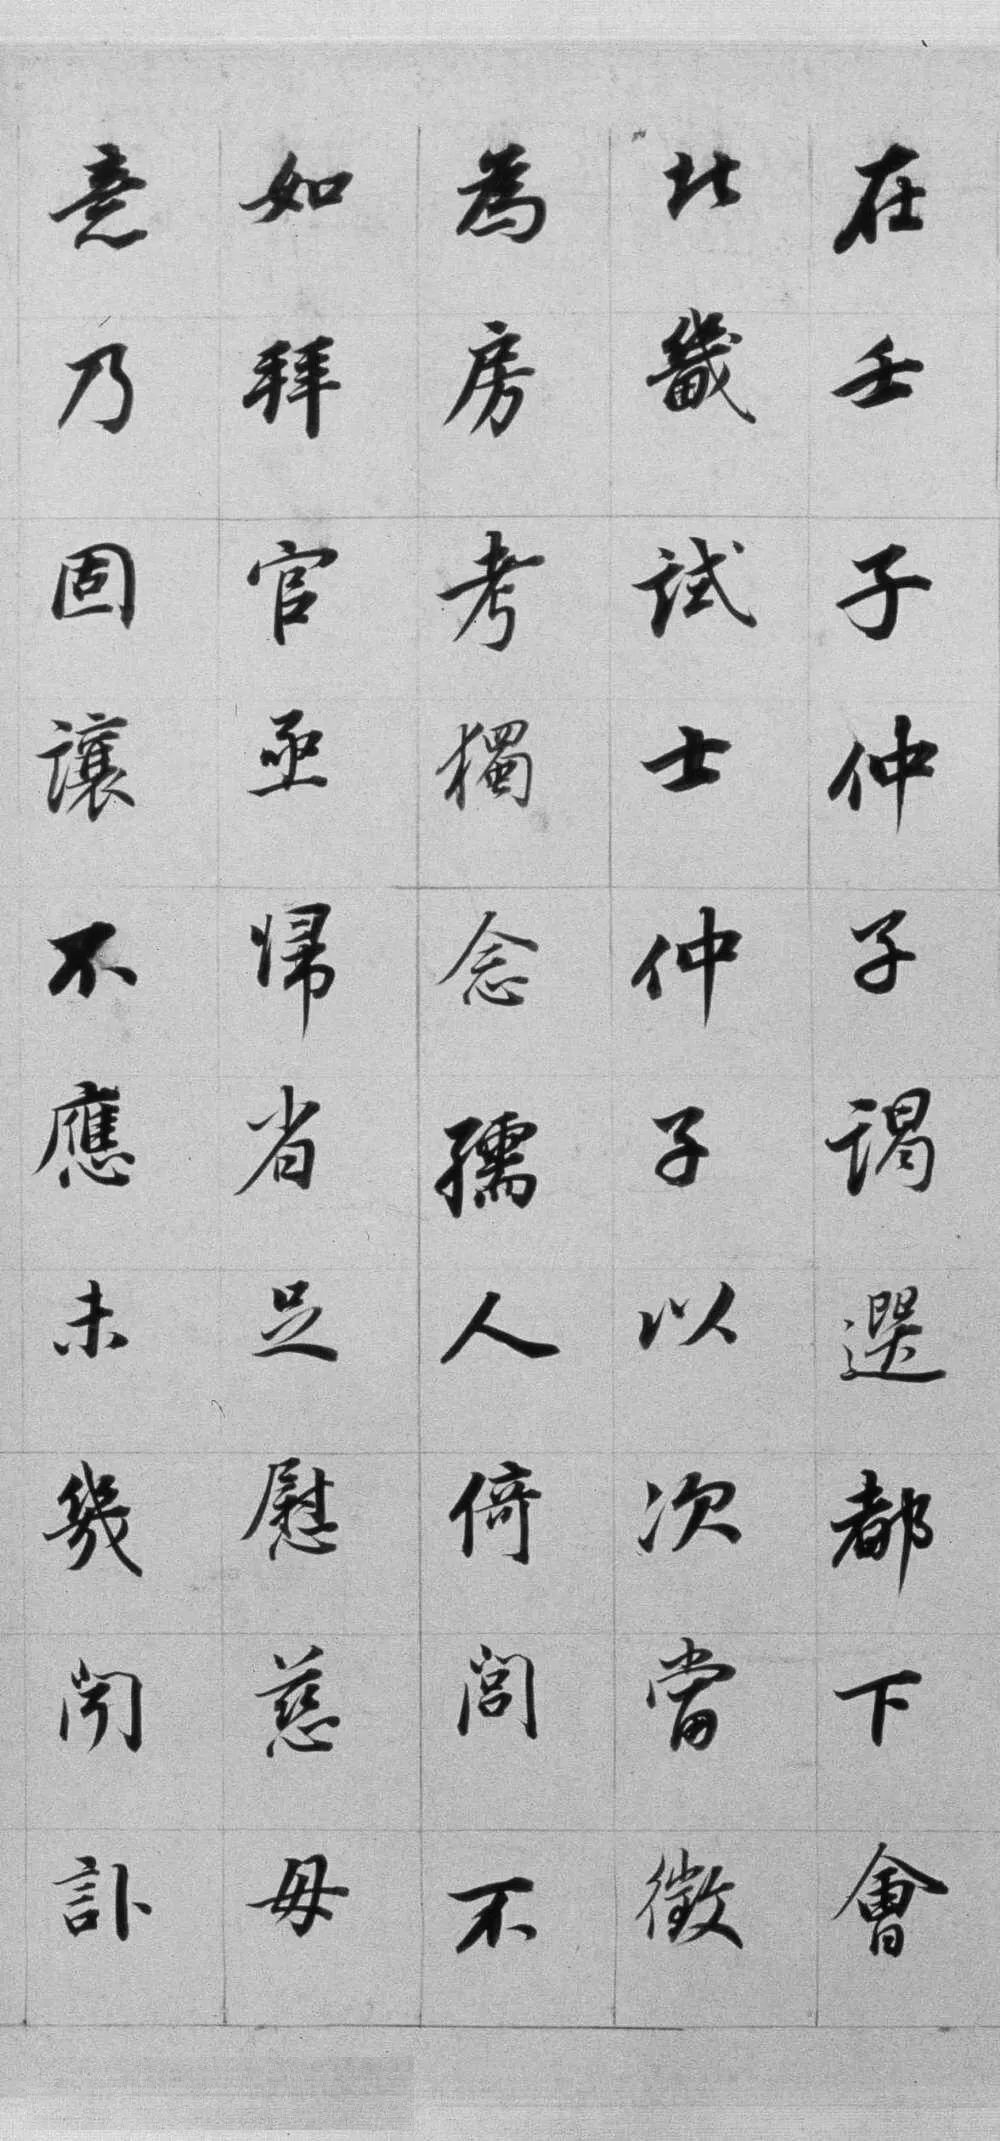 在壬子仲子謁選都下會
北畿試士仲子以次當徵
為房考獨念孺人倚閭不
如拜官亟歸省足慰慈母
意乃固讓不應未幾聞訃